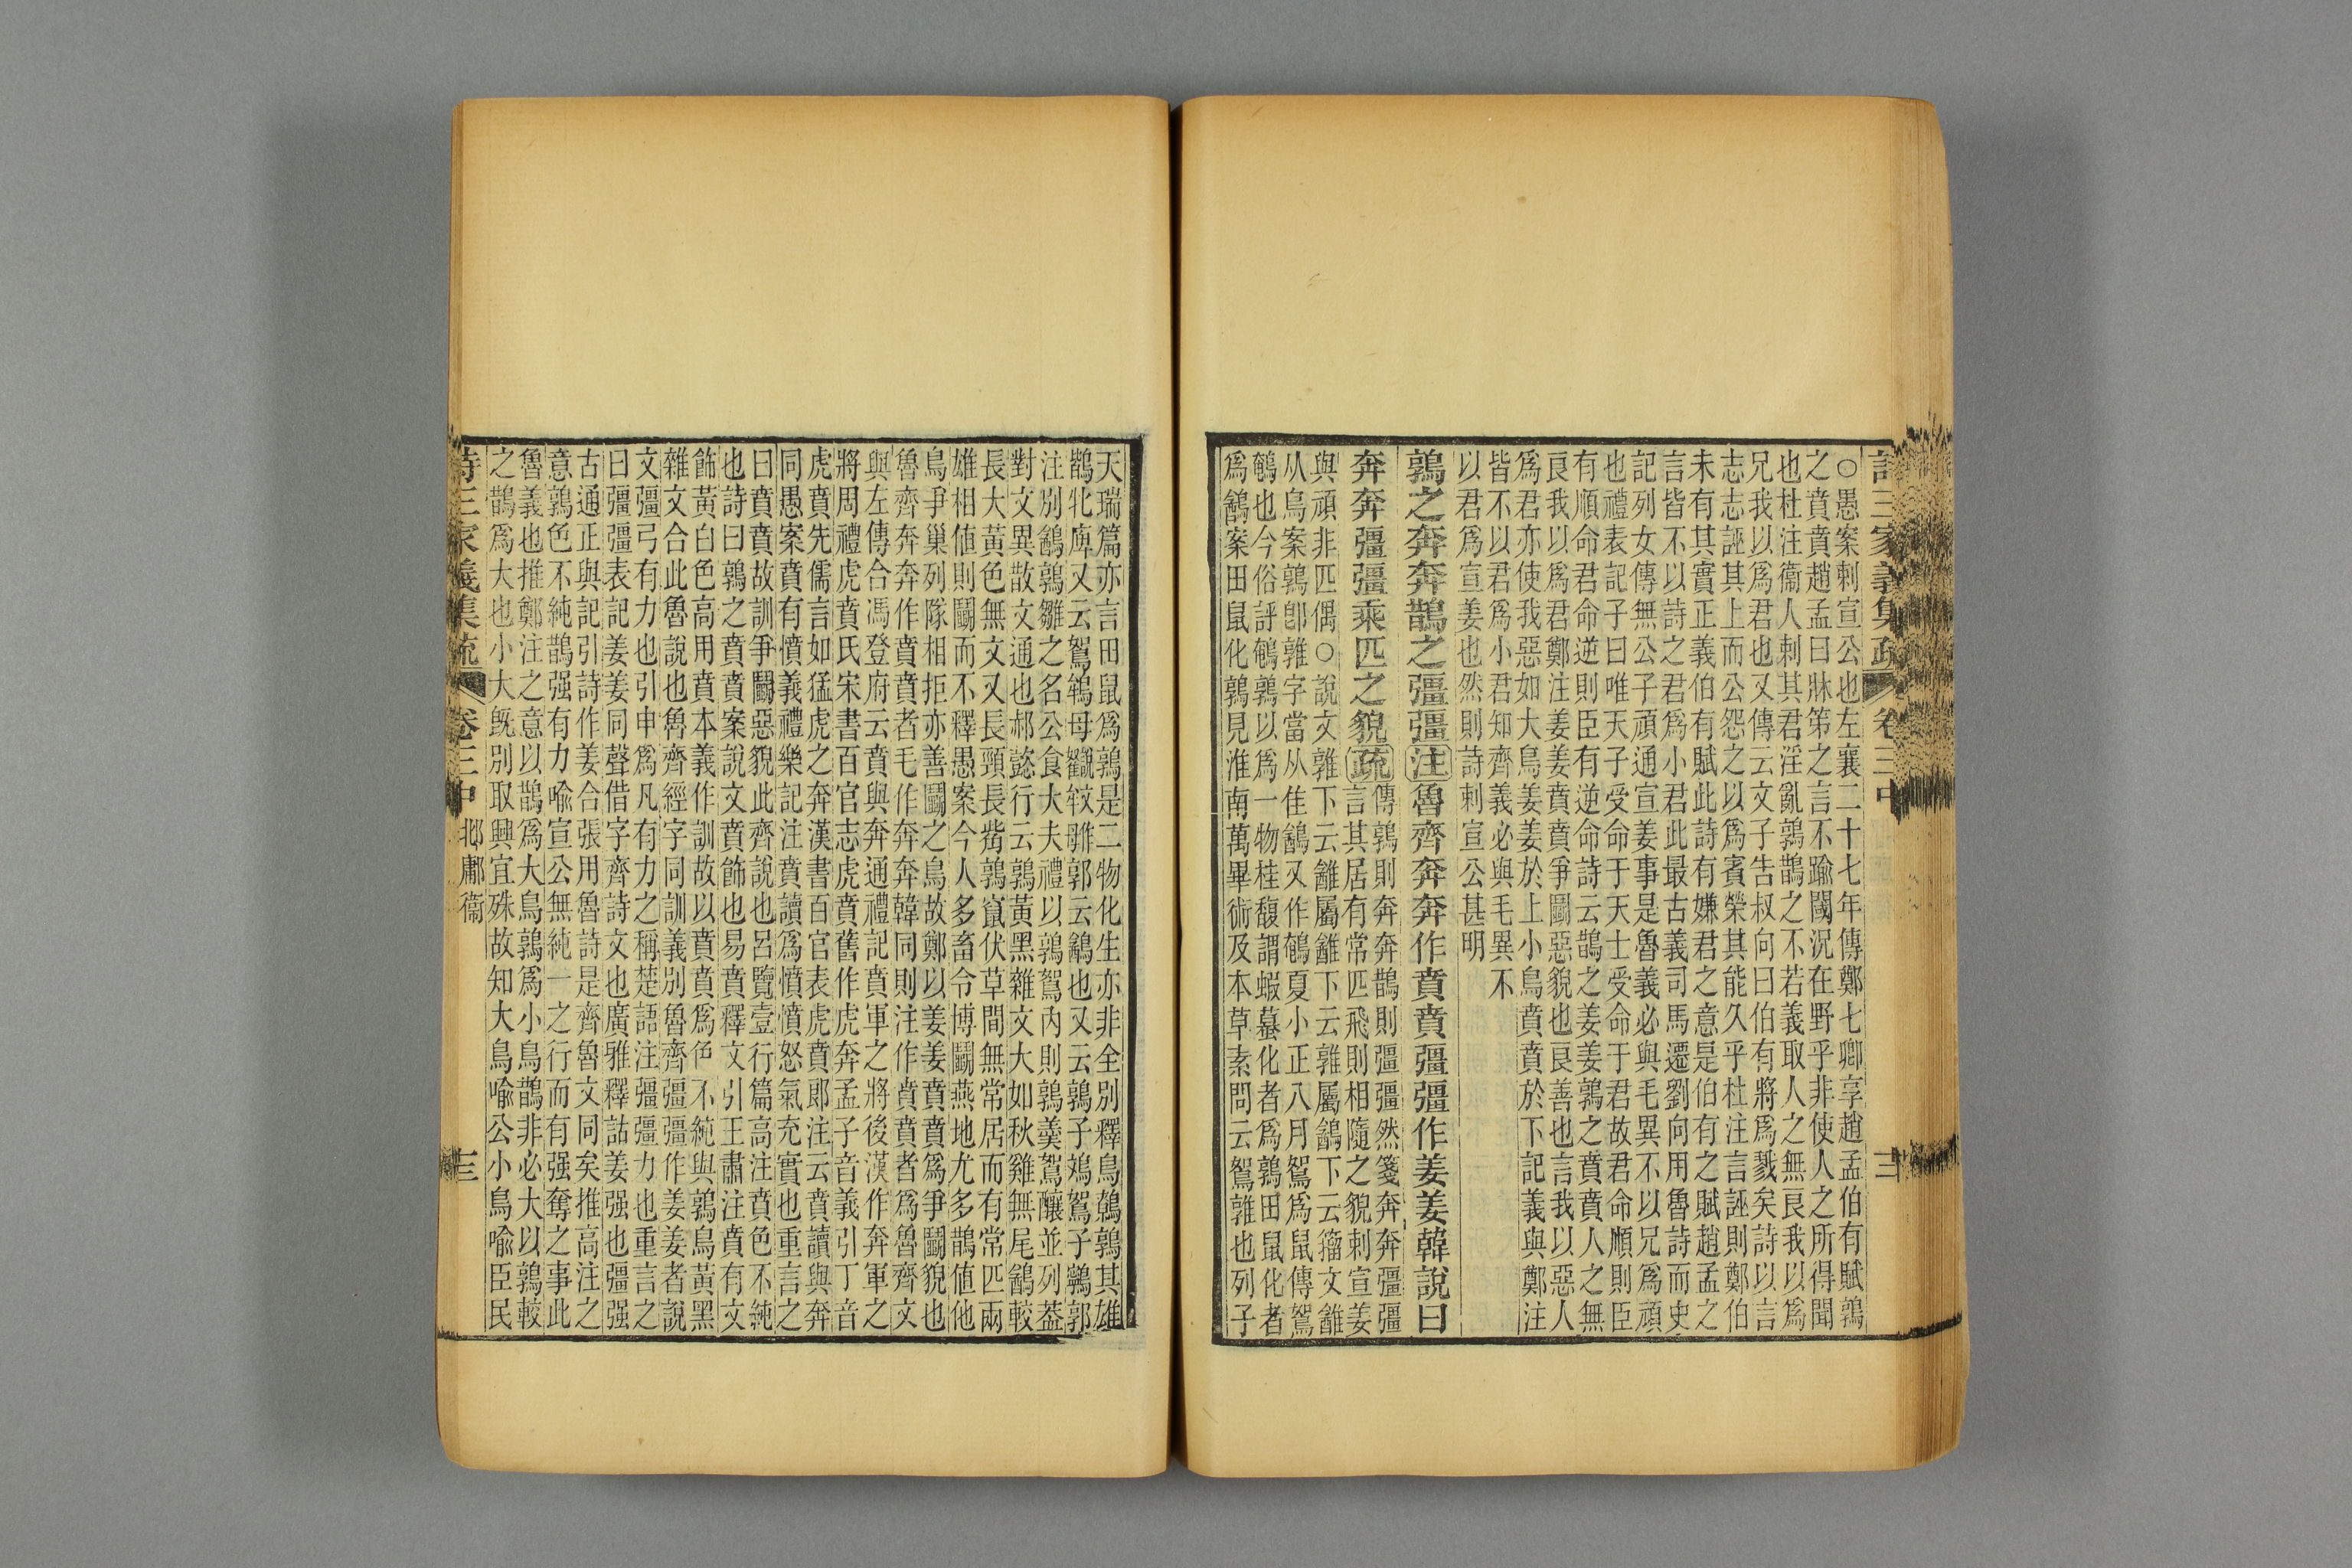 詩三家義集疏 卷三中
○愚案刺宣公也左襄二十七年傳鄭七卿享趙孟伯有賦鶉
之賁賁趙孟曰牀笫之言不踰閾況在野乎非使人之所得聞
也杜注衞人刺其君淫亂鶉鵲之不若義取人之無良我以爲
兄我以爲君也又傳云文子告叔向曰伯有將爲戮矣詩以言
志志誣其上而公怨之以爲賓榮其能久乎杜注言誣則鄭伯
未有其實正義伯有賦此詩有嫌君之意是伯有之賦趙孟之
言皆不以詩之君爲小君此最古義司馬遷劉向用魯詩而史
記列女傳無公子頑通宣姜事是魯義必與毛異不以兄爲頑
也禮表記子曰唯天子受命于天士受命于君故君命順則臣
有順命君命逆則臣有逆命詩云鵲之姜姜鶉之賁賁人之無
良我以爲君鄭注姜姜賁賁爭鬬惡貌也良善也言我以惡人
爲君亦使我惡如大鳥姜姜於上小鳥賁賁於下記義與鄭注
皆不以君爲小君知齊義必與毛異不
以君爲宣姜也然則詩刺宣公甚明
鶉之奔奔鵲之彊彊注魯齊奔奔作賁賁彊彊作姜姜韓說曰
奔奔彊彊乘匹之貌疏
傳鶉則奔奔鵲則彊彊然箋奔奔彊彊
言其居有常匹飛則相隨之貌刺宣姜
與頑非匹偶○說文雜下云雝屬雝下云雜屬鷂下云籀文雝
从鳥案鶉卽雜字當从隹鷂又作鵪夏小正八月鴽爲鼠傳鴽
鵪也今俗評鵪鶉以爲一物桂馥謂蝦蟇化者爲鶉田鼠化者
爲鷂案田鼠化鶉見淮南萬畢術及本草素問云鴽雜也列子
天瑞篇亦言田鼠爲鶉是二物化生亦非全別釋鳥鷯鶉其雄
鵲牝庳又云鴽鴾母郭云鷂也又云鶉子鳼鴽子鸋郭
注別鷂鶉雛之名公食大夫禮以鶉鴽內則鶉羹鴽釀並列葢
對文異散文通也郝懿行云鶉黃黑雜文大如秋雞無尾鷂較
長大黃色無文又長頸長觜鶉竄伏草間無常居而有常匹兩
雄相値則鬬而不釋愚案今人多畜令博鬬燕地尤多鵲値他
鳥爭巢列隊相拒亦善鬬之鳥故鄭以姜姜賁賁爲爭鬬貌也
魯齊奔奔作賁賁者毛作奔奔韓同則注作賁賁者爲魯齊文
與左傳合馮登府云賁與奔通禮記賁軍之將後漢作奔軍之
將周禮虎賁氏宋書百官志虎賁舊作虎奔孟子音義引丁音
虎賁先儒言如猛虎之奔漢書百官表虎賁郞注云賁讀與奔
同愚案賁有憤義禮樂記注賁讀爲憤憤怒氣充實也重言之
曰賁賁故訓爭鬬惡貌此齊說也呂覽壹行篇高注賁色不純
也詩曰鶉之賁賁案說文賁飾也易賁釋文引王肅注賁有文
飾黃白色高用賁本義作訓故以賁賁爲色不純與鶉鳥黃黑
雜文合此魯說也魯齊經字同訓義別魯齊彊彊作姜姜者說
文彊弓有力也引申爲凡有力之稱楚語注彊彊力也重言之
曰彊彊表記姜姜同聲借字齊詩文也廣雅釋詁姜强也彊强
古通正與記引詩作姜合張用魯詩是齊魯文同矣推高注之
意鶉色不純鵲强有力喩宣公無純一之行而有强奪之事此
魯義也推鄭注之意以鵲爲大鳥鶉爲小鳥鵲非必大以鶉較
之鵲爲大也小大旣別取興宜殊故知大鳥喩公小鳥喩臣民
詩三家義集疏 卷三中 邶鄘衞 三